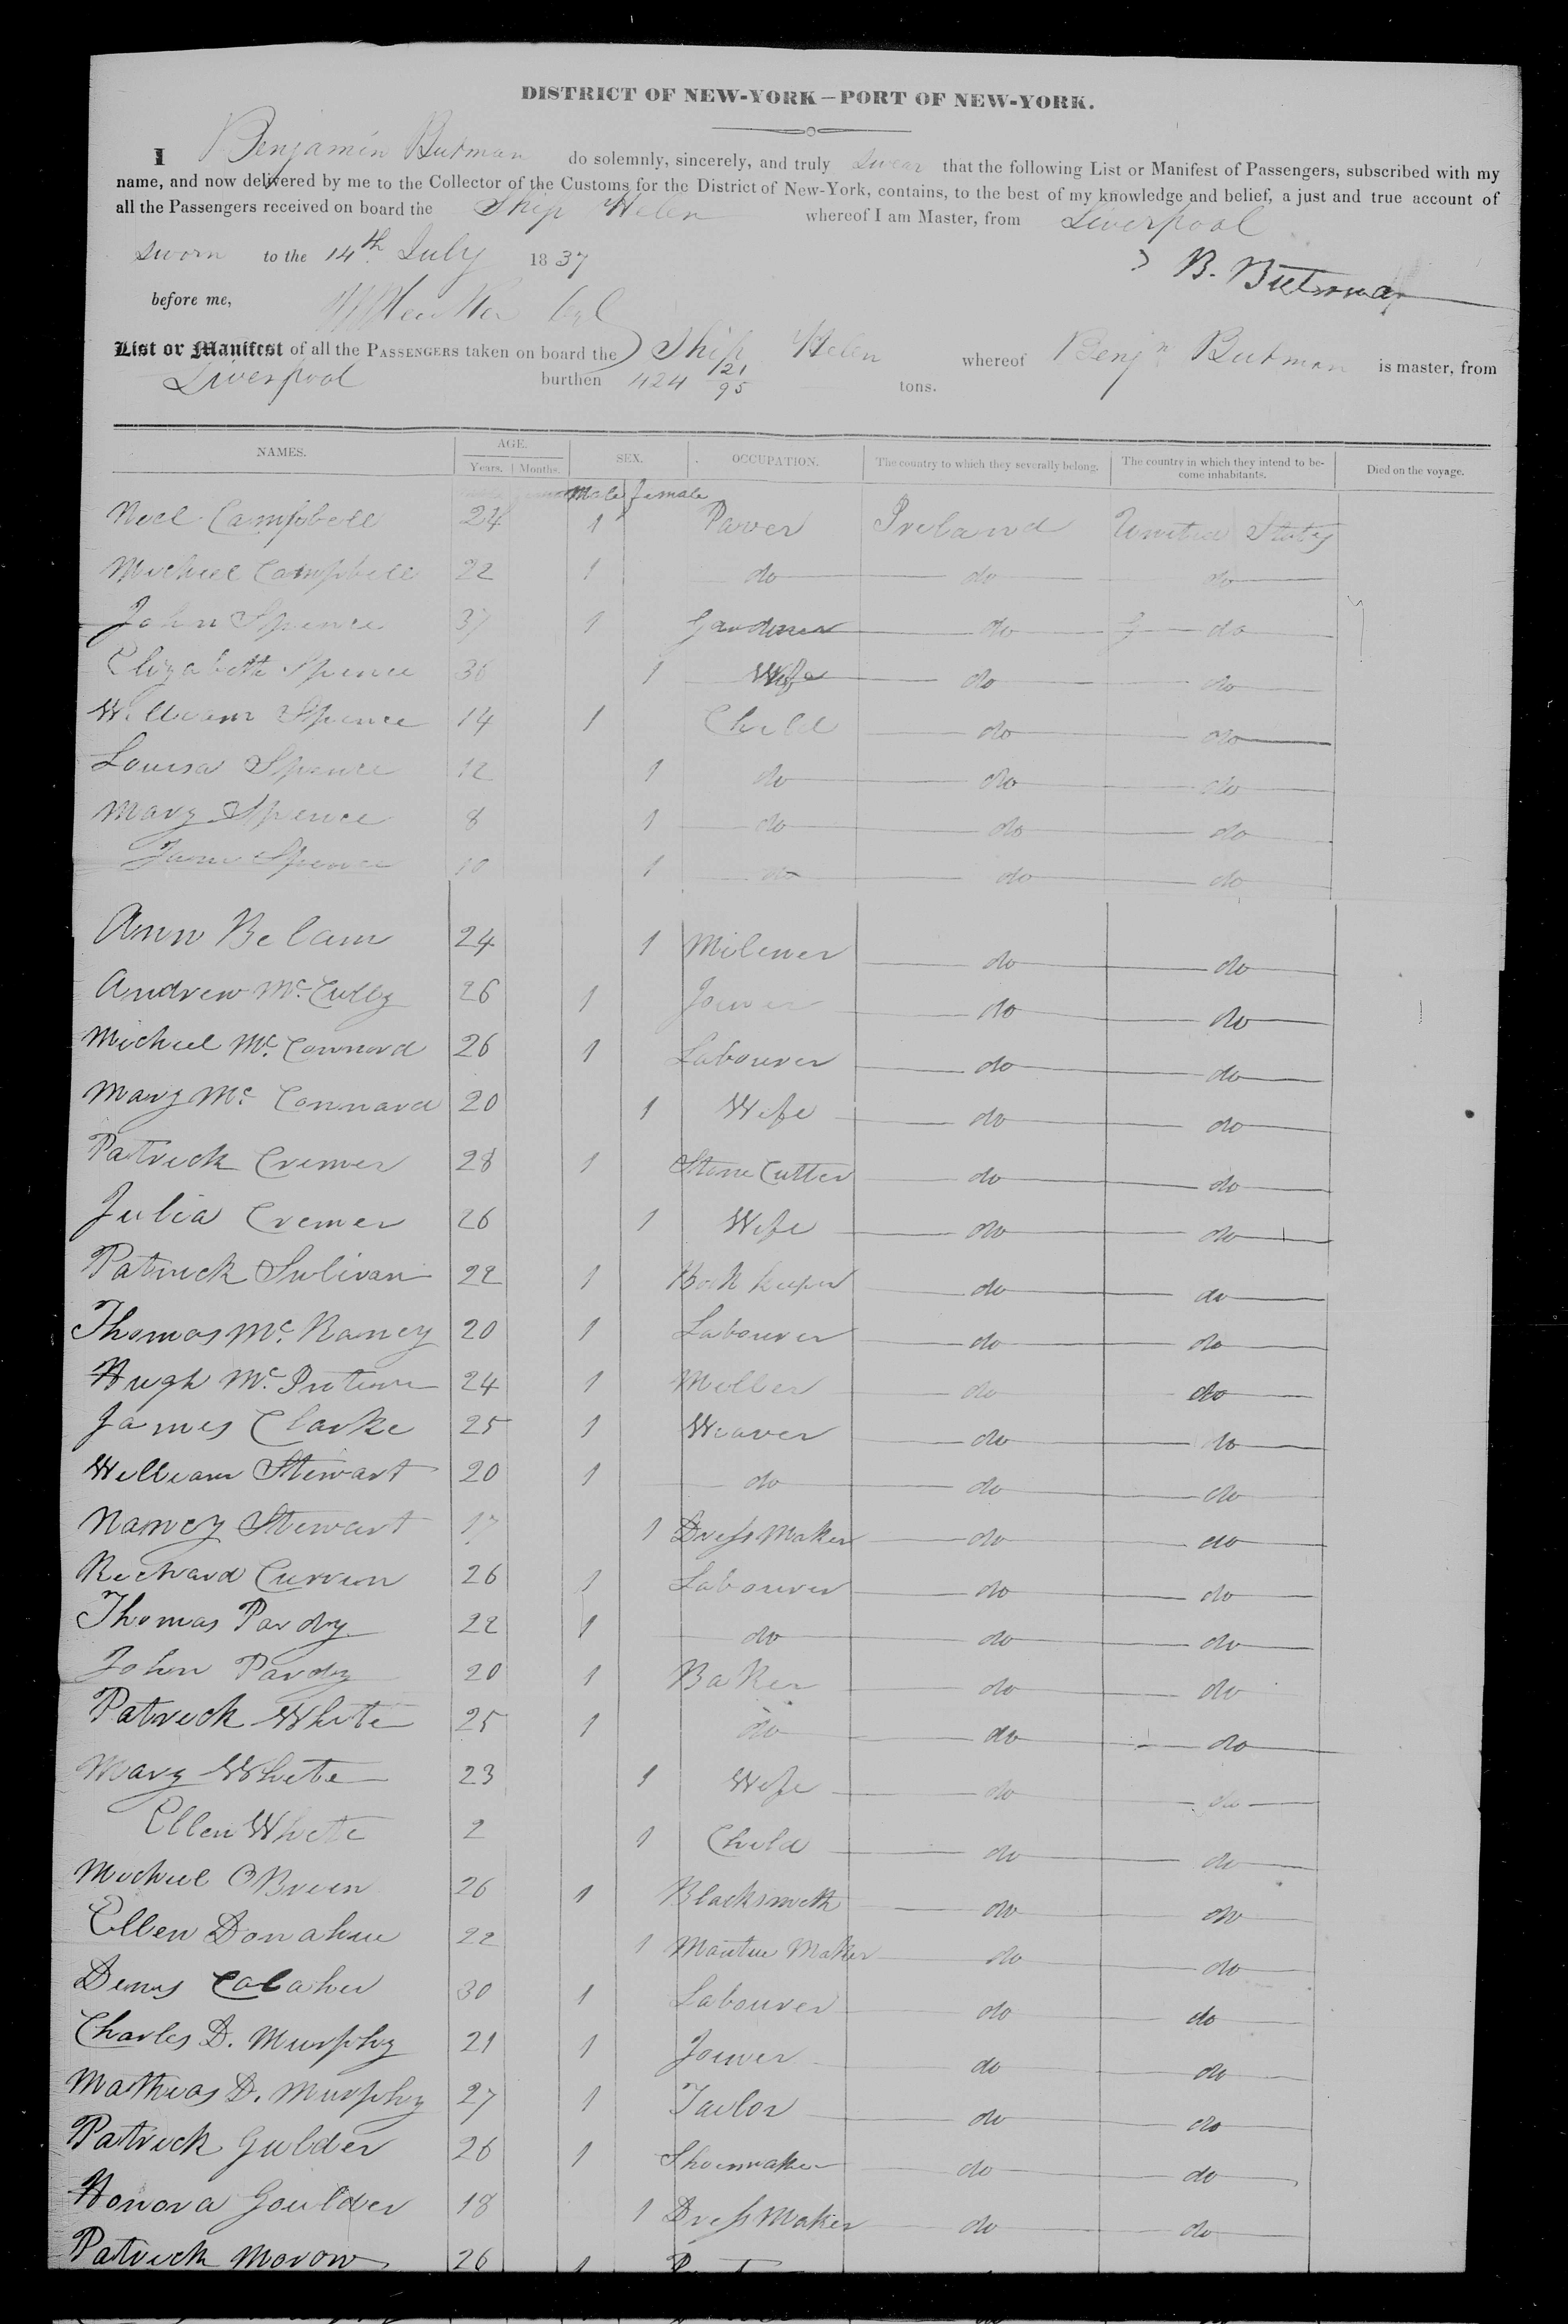 DISTRICT OF NEW-YORK—PORT OF NEW-YORK.
I Benjamin Butman do solemnly, sincerely, and truly swear that the following List or Manifest of Passengers, subscribed with my
name, and now delivered by me to the Collector of the Customs for the District of New-York, contains, to the best of my knowledge and belief, a just and true account of
all the Passengers received on board the Ship Helen whereof I am Master, from Liverpool
Sworn to the 14th July 1837
B. Butman
before me,
List or Manifest of all the PASSENGERS taken on board the Ship Helen whereof Benjn Butman is master, from
Liverpool burthen 424 121/95 tons.
NAMES. AGE. SEX. OCCUPATION. The country to which they severally belong. The country in which they intend to be- come inhabitants. Died on the voyage.
Years. Months.
Male female
Neil Campbell 24 1 Paver Ireland United States
Michael Campbell 22 1 do do do
John Spence 37 1 Gardener do do
Elizabeth Spence 36 1 Wife do do
William Spence 14 1 Child do do
Louisa Spence 12 1 do do do
Mary Spence 8 1 do do do
Jane Spence 10 1 do do do
Ann Belam 24 1 Milener do do
Andrew Mc Cully 26 1 Joiner do do
Michael Mc Connard 26 1 Labourer do do
Mary Mc Connard 20 1 Wife do do
Patrick Cremer 28 1 Stone Cutter do do
Julia Cremer 26 1 Wife do do
Patrick Sulivan 22 1 Book keeper do do
Thomas Mc Raney 20 1 Labourer do do
Hugh Mc 24 1 Miller do do
James Clarke 25 1 Weaver do do
William Stewart 20 1 do do do
Nancy Stewart 17 1 Dress Maker do do
Richard Curren 26 1 Labourer do do
Thomas Pardy 22 1 do do do
John Pardy 20 1 Baker do do
Patrick White 25 1 do do do
Mary White 23 1 Wife do do
Ellen White 2 1 Child do do
Michael OBrien 26 1 Blacksmith do do
Ellen Donahue 22 1 Mantue Maker do do
Denis Calaher 30 1 Labourer do do
Charles D. Murphy 21 1 Joiner do do
Mathias D. Murphy 27 1 Tailor do do
Patrick Gulder 26 1 Shoemaker do do
Honora Goulder 18 1 Dress Maker do do
Patrick Morow 26 1